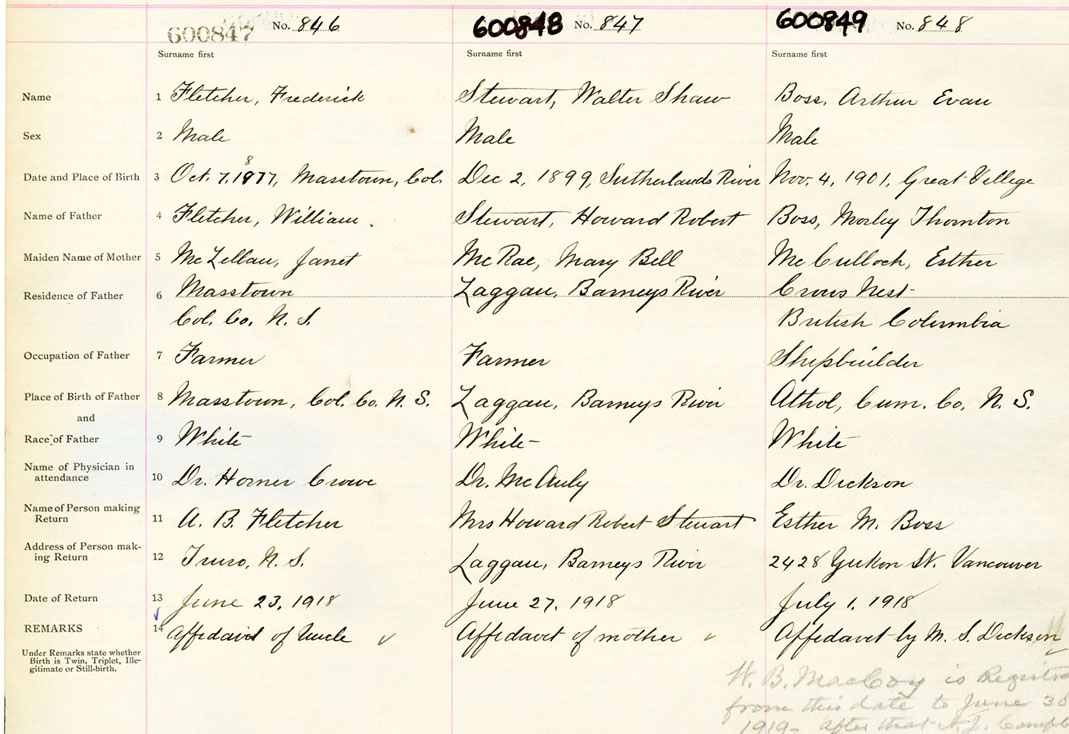 600847 No. 846 600848 No. 847 600849 No. 848
Surname first Surname first Surname first
Name 1 Fletcher, Frederick Stewart, Walter Shaw Boss, Arthur Evan
Sex 2 Male Male Male
8
Date and Place of Birth 3 Oct. 7, 1877, Masstown, Col. Dec 2, 1899, Sutherlands River Nov. 4, 1901, Great Village
Name of Father 4 Fletcher, William. Stewart, Howard Robert Boss, Morley Thornton
Maiden Name of Mother 5 McLellan, Janet McRae, Mary Bell McCulloch, Esther
Residence of Father 6 Masstown Laggan, Barneys River Crows Nest
Col. Co. N. S. British Columbia
Occupation of Father 7 Farmer Farmer Shipbuilder
Place of Birth of Father 8 Masstown, Col. Co. N. S. Laggan, Barneys River Athol, Cum. Co, N. S.
and
Race of Father 9 White White White
Name of Physician in
attendance 10 Dr. Horner Crowe Dr. McAuly Dr. Dickson
Name of Person making
Return 11 A. B. Fletcher Mrs Howard Robert Stewart Esther M. Boss
Address of Person mak-
ing Return 12 Truro, N. S. Laggan, Barneys River 2428 Yukon St. Vancouver
Date of Return 13 June 23, 1918 June 27, 1918 July 1, 1918
REMARKS 14 Affidavit of Uncle Affidavit of mother Affidavit by M. S. Dickson
Under Remarks state whether
Birth is Twin, Triplet, Ille-
gitimate or Still-birth.
W. B. MacCoy is Registra
from this date to June 30
1919 - after that A. J. Campb